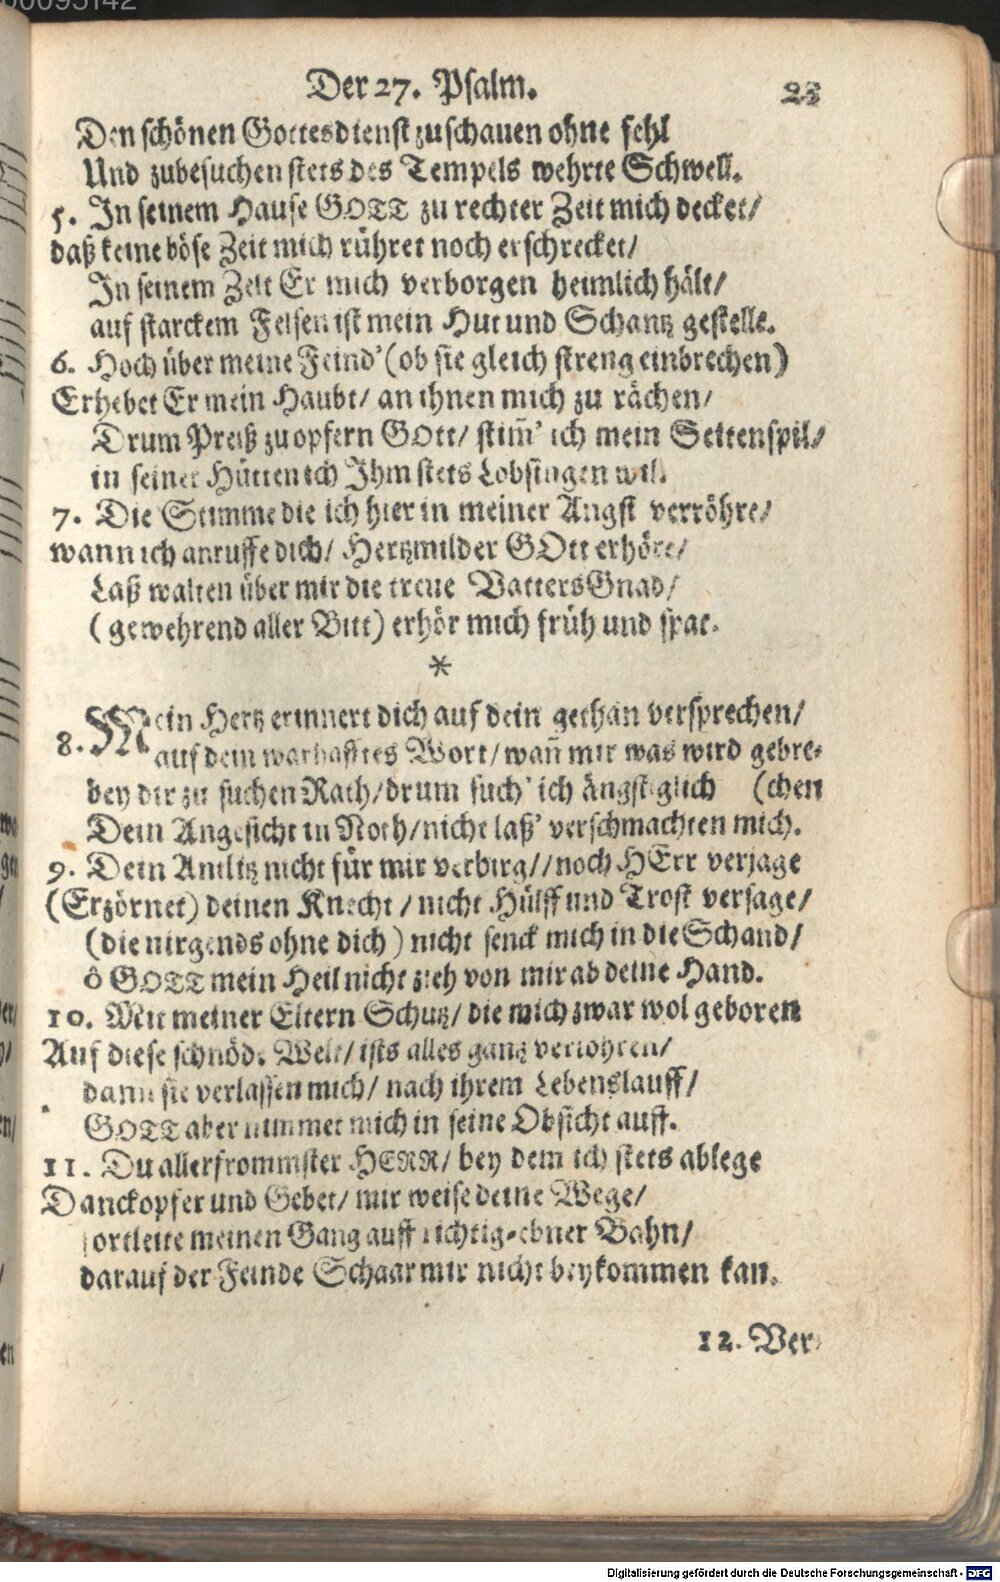 Der 27. Psalm.
Den schönen Gottesdienst zuschauen ohne fehl
Und zubesuchen stets des Tempels wehrte Schwell.
5. In seinem Hause GOTT zu rechter Zeit mich decket/
daß keine böse Zeit mich rühret noch erschrecket/
In seinem Zelt Er mich verborgen heimlich hält/
auf starckem Felsen ist mein Hut und Schantz gestelle.
6. Hoch über meine Feind' (ob sie gleich streng einbrechen)
Erhebet Er mein Haubt/ an ihnen mich zu rächen/
Drum Preiß zu opfern GOtt/ stim̃' ich mein Seitenspil/
in seiner Hütten ich Ihm stets Lobsingen wil.
7. Die Stimme die ich hier in meiner Angst verröhre/
wann ich anruffe dich/ Hertzmilder GOtt erhöre/
Laß walten über mir die treue VattersGnad/
(gewehrend aller Bitt) erhör mich früh und spat.
*
8. Mein Hertz erinnert dich auf dein gethan versprechen/
auf dein warhafftes Wort/ wañ mir was wird gebre-
bey dir zu suchen Rath/ drum such' ich ängstiglich (chen
Dein Angesicht in Noth/ nicht laß' verschmachten mich.
9. Dein Antlitz nicht für mir verbirg// noch HErr verjage
(Erzörnet) deinen Knecht/ nicht Hülff und Trost versage/
(die nirgends ohne dich) nicht senck mich in die Schand/
ô GOTT mein Heil nicht zieh von mir ab deine Hand.
10. Mit meiner Eltern Schutz/ die mich zwar wol geboren
Auf diese schnöde Welt/ ists alles gantz verlohren/
dann sie verlassen mich/ nach ihrem Lebenslauff/
GOTT aber nimmet mich in seine Obsicht auff.
11. Du allerfrommster HERR/ bey dem ich stets ablege
Danckopfer und Gebet/ mir weise deine Wege/
fortleite meinen Gang auff richtig-ebner Bahn/
darauf der Feinde Schaar mir nicht beykommen kan.
12. Ver-
Digitalisierung gefördert durch die Deutsche Forschungsgemeinschaft - DFG